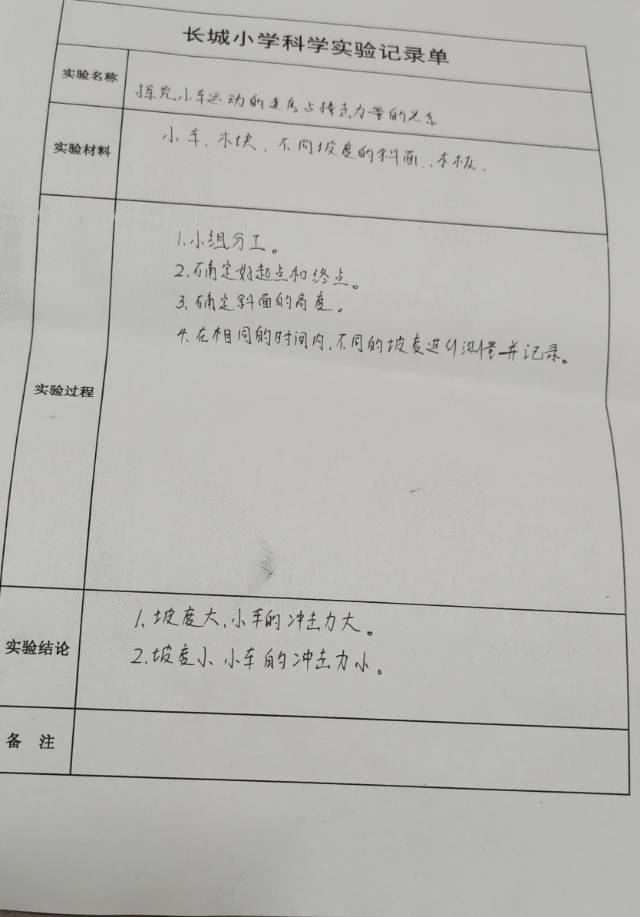 长城小学科学实验记录单
实验名称
探究小车运动的速度与撞击力量的关系
实验材料
小车、木块、不同坡度的斜面、木板.
实验过程
1.小组分工。
2.确定好起点和终点。
3.确定斜面的高度。
4.在相同的时间内,不同的坡度进行测量并记录。
实验结论
1.坡度大,小车的冲击力大。
2.坡度小、小车的冲击力小。
备 注